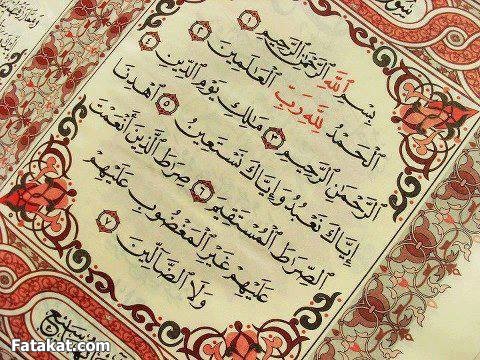 بِسْمِ ٱللَّهِ ٱلرَّحْمَٰنِ ٱلرَّحِيمِ ١
ٱلْحَمْدُ لِلَّهِ رَبِّ ٱلْعَٰلَمِينَ ٢
ٱلرَّحْمَٰنِ ٱلرَّحِيمِ ٣ مَٰلِكِ يَوْمِ ٱلدِّينِ ٤
إِيَّاكَ نَعْبُدُ وَإِيَّاكَ نَسْتَعِينُ ٥ ٱهْدِنَا
ٱلصِّرَٰطَ ٱلْمُسْتَقِيمَ ٦ صِرَٰطَ ٱلَّذِينَ أَنْعَمْتَ
عَلَيْهِمْ غَيْرِ ٱلْمَغْضُوبِ عَلَيْهِمْ
وَلَا ٱلضَّآلِّينَ ٧
Fatakat.com